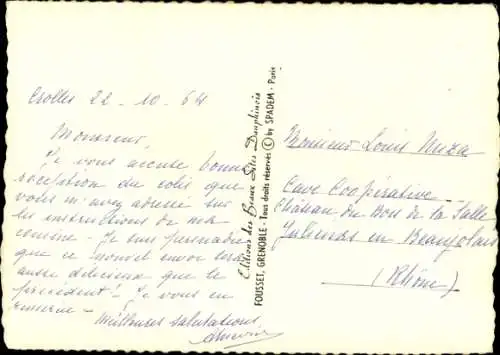 Crolles 22 - 10 - 64
Monsieur,
Je vous accuse bonne
réception du colis que
vous m'avez adressé sur
les instructions de ma
cousine. Je suis persuadée
que ce nouvel envoi sera
aussi délicieux que le
précédent! Je vous en
remercie -
Meilleures salutations
Editions des Beaux Sites Dauphinois
FOUSSET, GRENOBLE - Tous droits réservés © by SPADEM - Paris
Monsieur Louis
Cave Coopérative
Château du Bois de la Salle
Juliénas en Beaujolais
(Rhône)